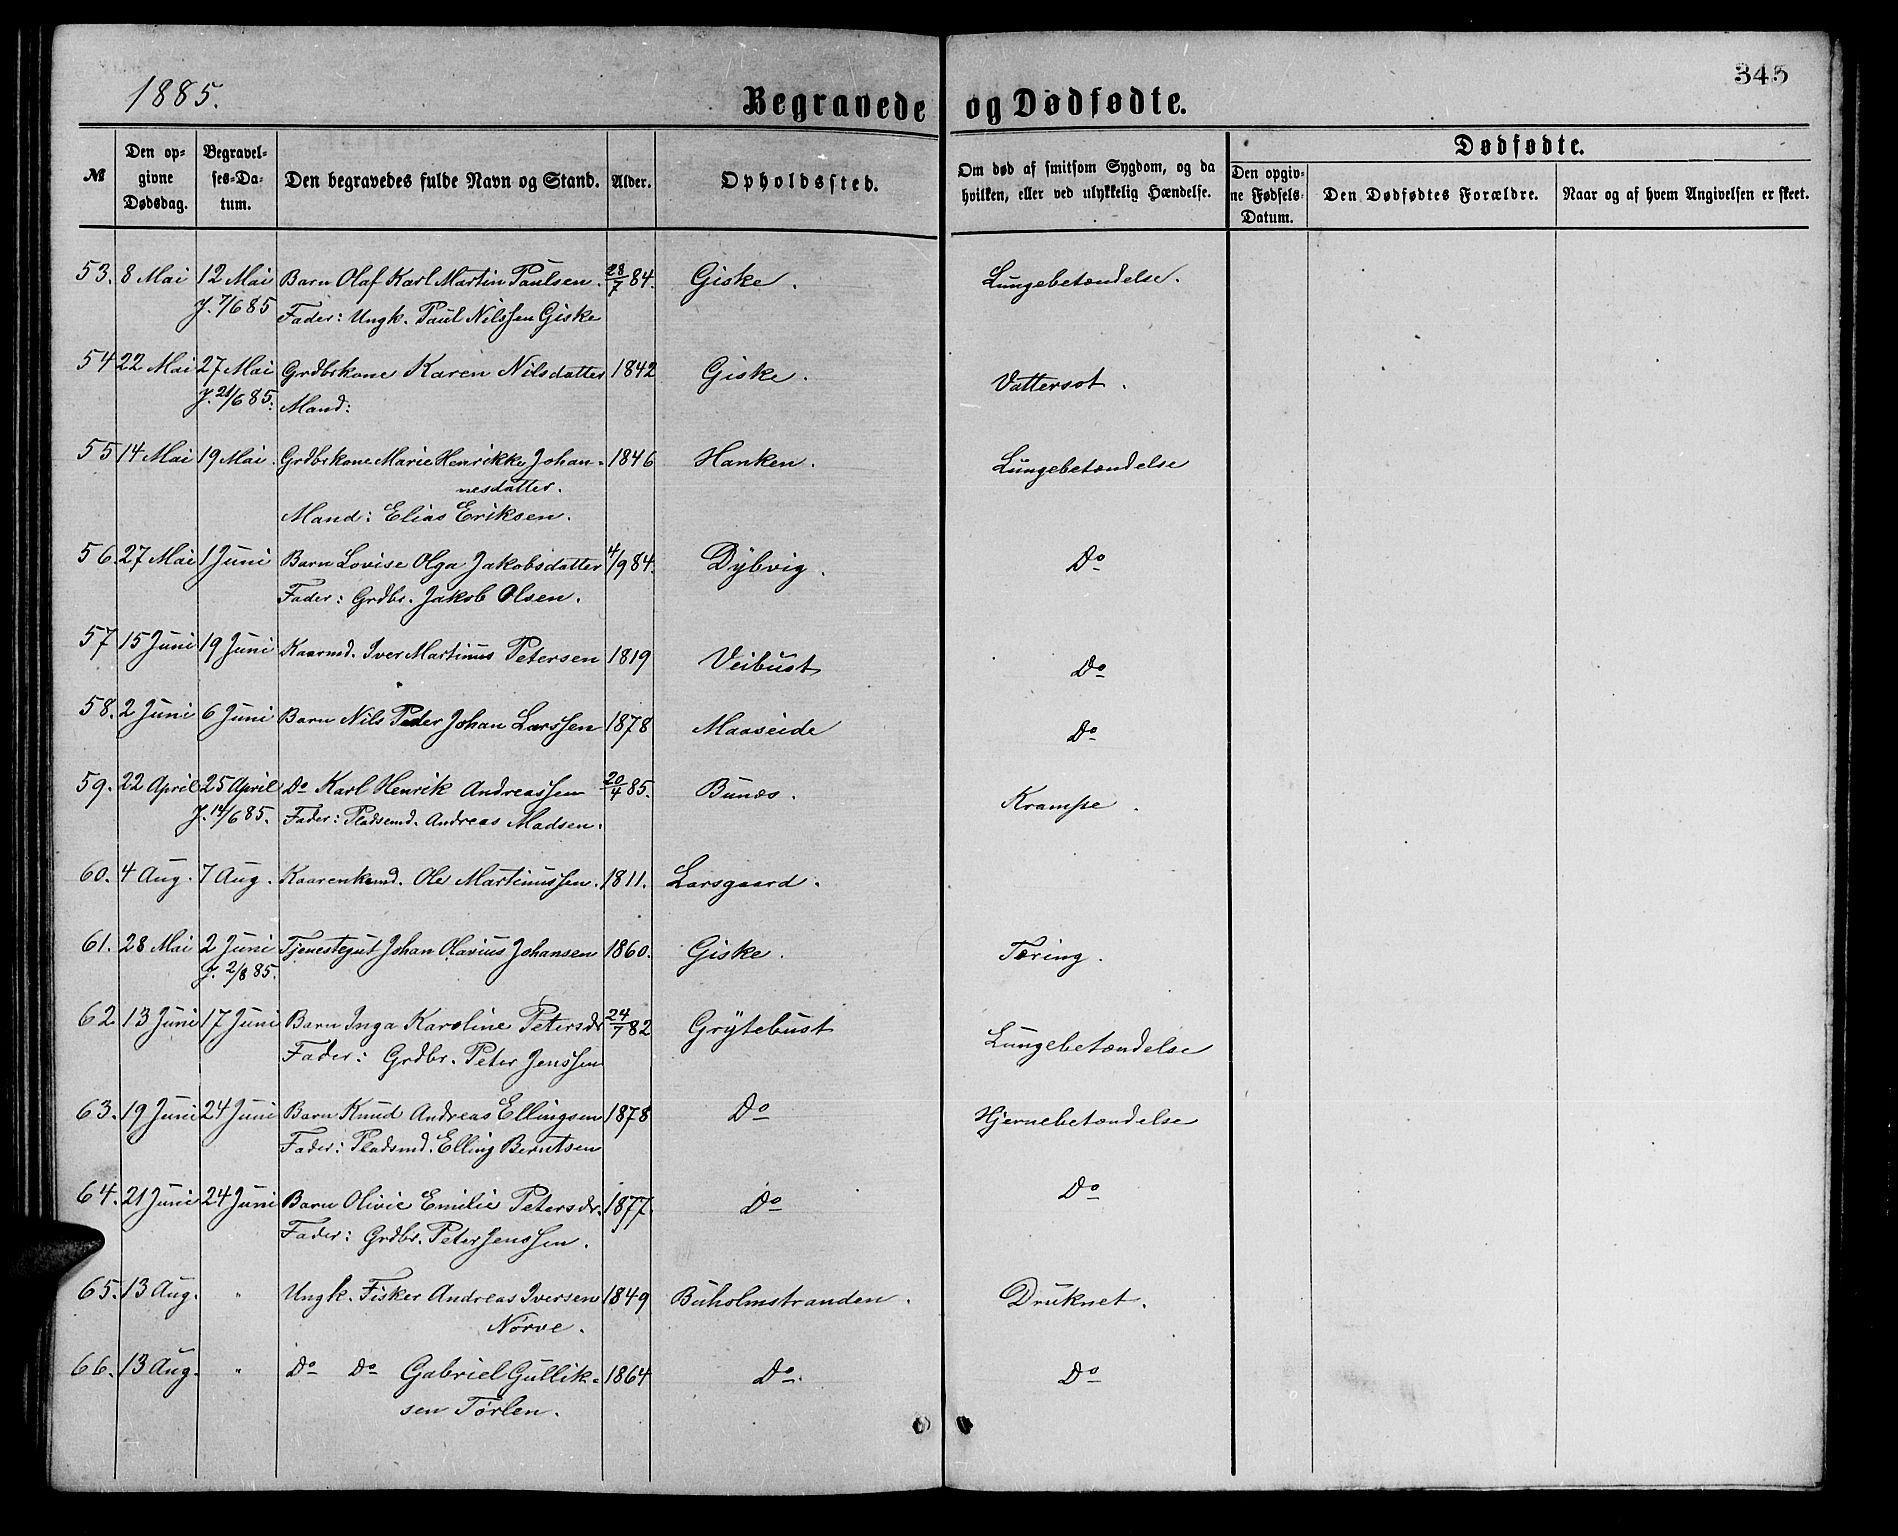 1885.
Begravede og Dødfødte.
345
№
Den opgivne Dødsdag.
Begravelses-Datum.
Den begravedes fulde Navn og Stand.
Alder.
Opholdssted.
Om død af smitsom Sygdom, og da hvilken, eller ved ulykkelig Hændelse.
Dødfødte.
Den opgivne Fødsels-Datum.
Den Dødfødtes Forældre.
Naar og af hvem Angivelsen er skeet.
53. 8 Mai 12 Mai Barn Olaf Karl Martin Paulsen. 28/7 84. Giske. Lungebetændelse.
J. 7/6 85 Fader: Ungk. Paul Nilssen Giske
54 22 Mai 27 Mai Grdbrkone Karen Nilsdatter 1842 Giske. Vattersot.
J. 21/6 85. Mand:
55 14 Mai 19 Mai. Grdbrkone Marie Henrikke Johan- 1846 Hanken. Lungebetændelse
nesdatter.
Mand: Elias Eriksen.
56. 27 Mai 1 Juni Barn Lovise Olga Jakobsdatter 4/9 84. Dybvig. Do
Fader: Grdbr. Jakob Olsen.
57 15 Juni 19 Juni Kaarmd. Iver Martinus Petersen 1819 Veibust Do
58. 2 Juni 6 Juni Barn Nils Peder Johan Larssen 1878 Maaseide Do
59. 22 April 25 April Do Karl Henrik Andreassen 20/4 85. Bunæs. Krampe.
J. 14/6 85. Fader: Pladsemd. Andreas Madsen.
60. 4 Aug. 7 Aug. Kaarenkemd. Ole Martinussen. 1811. Larsgaard.
61. 28 Mai 2 Juni Tjenestegut Johan Olarius Johansen 1860. Giske. Tæring.
J. 2/8 85.
62 13 Juni 17 Juni Barn Inga Karoline Petersdr 24/7 82 Grytebust Lungebetændelse
Fader: Grdbr. Peter Jenssen
63. 19 Juni 24 Juni Barn Knud Andreas Ellingsen 1878 Do Hjernebetændelse
Fader: Pladsmd. Elling Berntsen
64. 21 Juni 24 Juni Barn Olivie Emilie Petersdr. 1877. Do Do
Fader: Grdbr. Peter Jenssen.
65. 13 Aug. " Ungk. Fisker Andreas Iversen 1849 Buholmstranden. Druknet.
Nørve.
66. 13 Aug. " Do Do Gabriel Gullik- 1864 Do. Do
sen Tørlen.